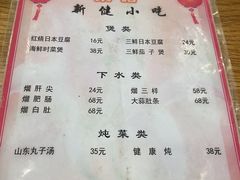 新健小吃
煲类
红烧日本豆腐 16元 三鲜日本豆腐 24元
海鲜时菜煲 38元 三鲜茄子煲 30元
下水类
熘肝尖 24元 熘三样 58元
熘肥肠 68元 大蒜肚条 68元
熘白肚 68元
炖菜类
山东丸子汤 35元 健康炖 38元